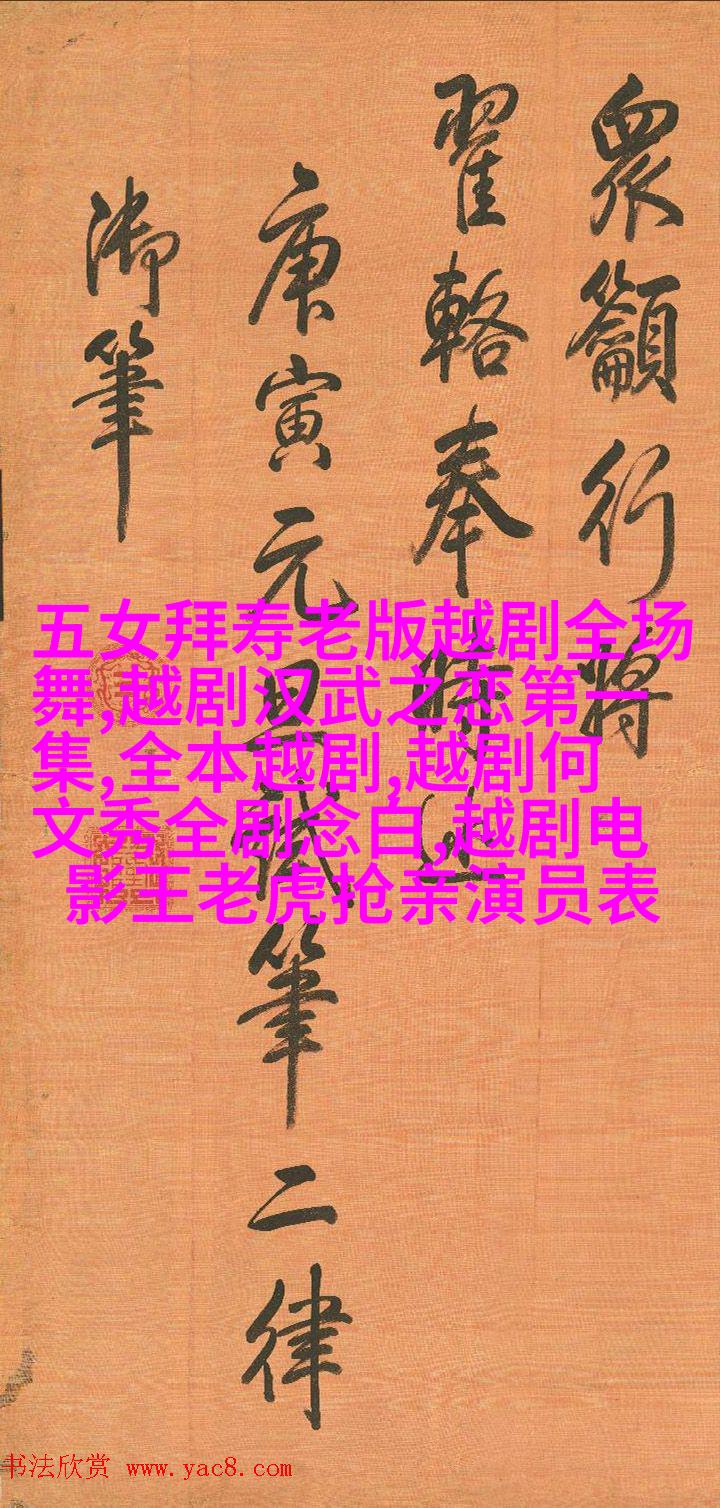 衆籲行將
翟輅奉
庚寅元旦試筆二律
御筆
五女拜寿老版越剧全场
舞,越剧汉武之恋第一
集,全本越剧,越剧何
文秀全剧念白,越剧电
影王老虎抢亲演员表
书法欣赏 www.yac8.com